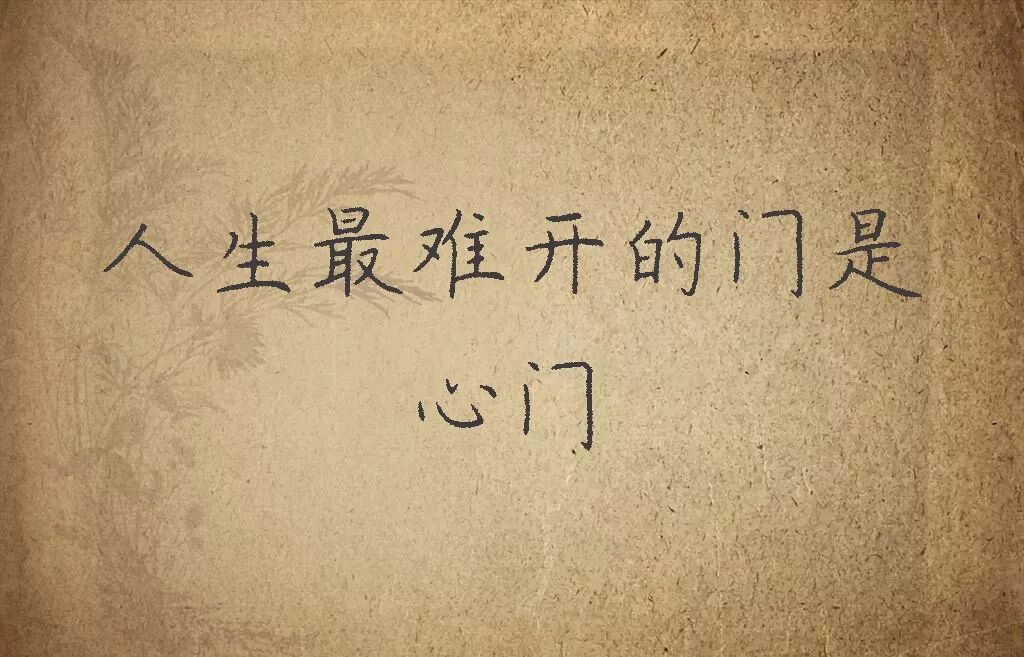 人生最难开的门是
心门